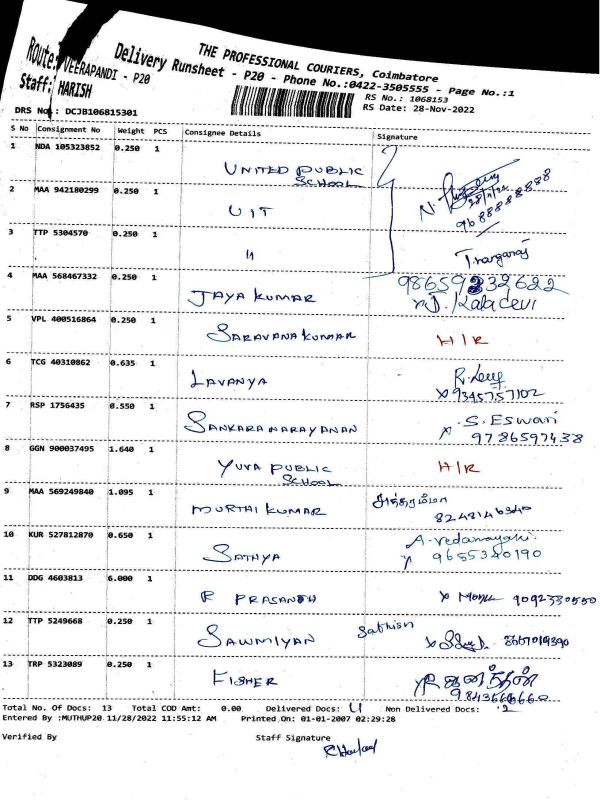 THE PROFESSIONAL COURIERS, Coimbatore
Delivery Runsheet - P20 - Phone No.:0422-3505555 - Page No.:1
Route: VEERAPANDI - P20
Staff: HARISH
RS No.: 1068153
RS Date: 28-Nov-2022
DRS No.: DCJB106815301
S No Consignment No Weight PCS Consignee Details Signature
1 NDA 105323852 0.250 1 UNITED PUBLIC SCHOOL
2 MAA 942180299 0.250 1 UIT
28/11/22
3 TTP 5304570 0.250 1 "
4 MAA 568467332 0.250 1 JAYA KUMAR
5 VPL 400516864 0.250 1 SARAVANA KUMAR H/R
6 TCG 40310862 0.635 1 LAVANYA
9345757102
7 RSP 1756435 0.550 1 SANKARA NARAYANAN S. ESWARI
9786597438
8 GGN 900037495 1.640 1 YUVA PUBLIC SCHOOL H/R
9 MAA 569249840 1.095 1 MURTHI KUMAR
10 KUR 527812870 0.650 1 SATHYA A. Vedanayaki
9655340190
11 DDG 4603813 6.000 1 P PRASANTH 9092330550
12 TTP 5249668 0.250 1 SAWMIYAN Sathish
13 TRP 5323089 0.250 1 FISHER
Total No. Of Docs: 13 Total COD Amt: 0.00 Delivered Docs: 11 Non Delivered Docs: 2
Entered By :MUTHUP20 11/28/2022 11:55:12 AM Printed On: 01-01-2007 02:29:28
Verified By Staff Signature